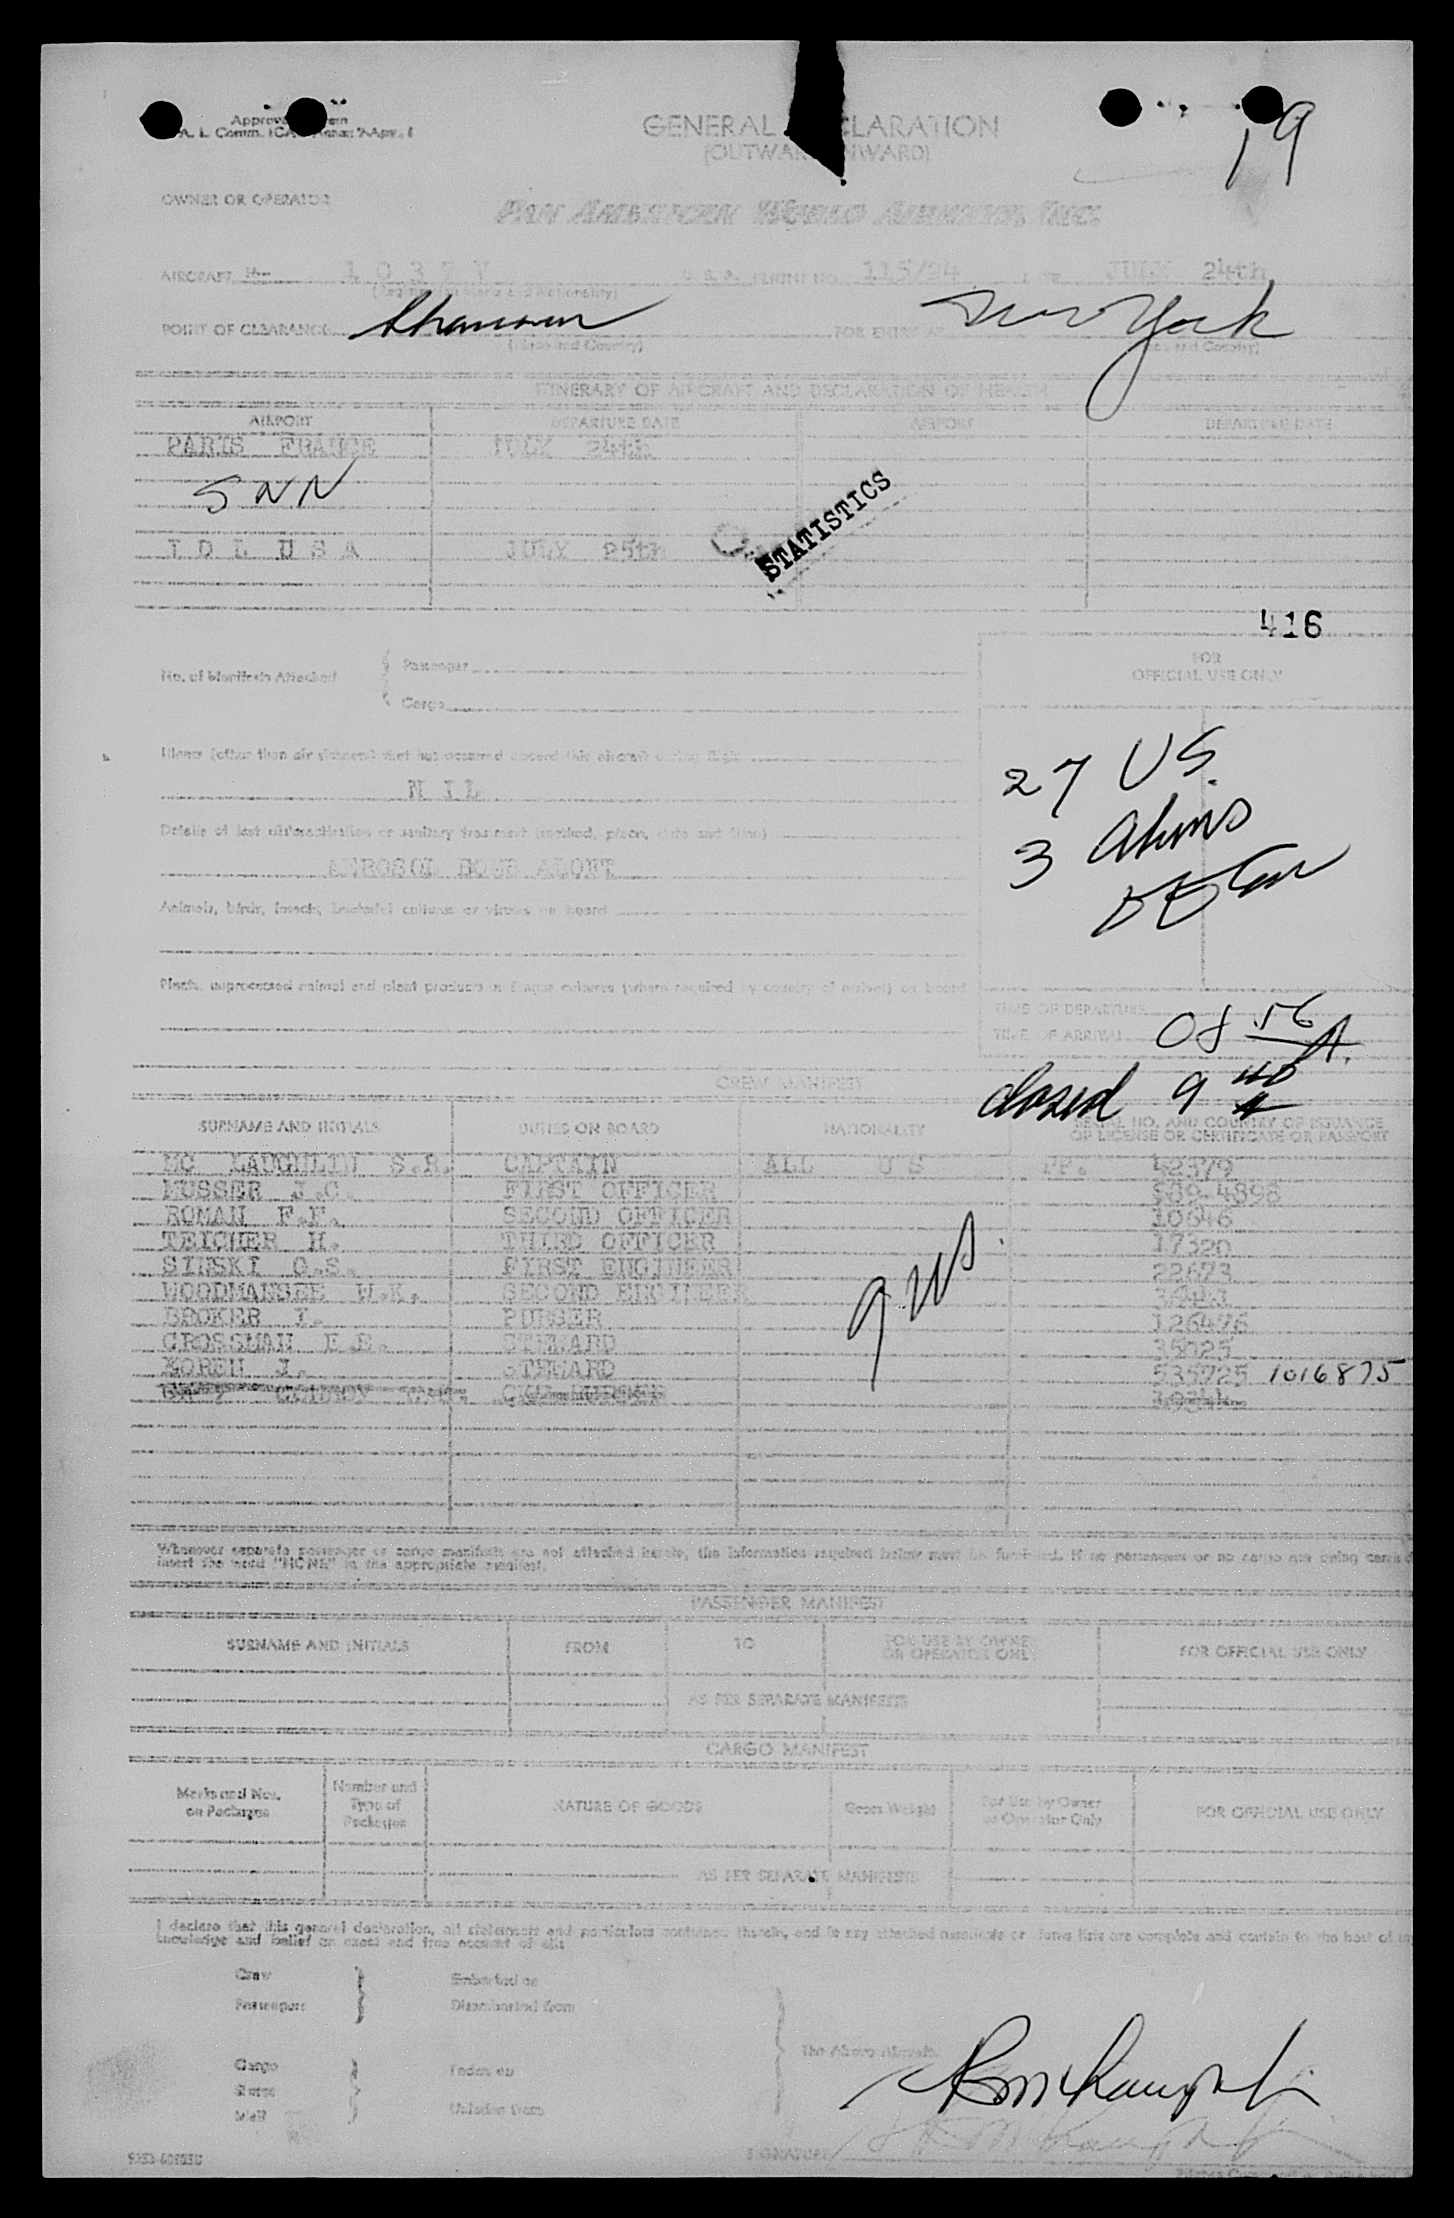 19
GENERAL DECLARATION
(OUTWARD/INWARD)
OWNER OR OPERATOR
PAN AMERICAN WORLD AIRWAYS, INC.
AIRCRAFT 1 0 3 7 V FLIGHT NO. 115/24 DATE JULY 24th
POINT OF CLEARANCE Shannon FOR ENTRY AT New York
(Place and Country) (Place and Country)
ITINERARY OF AIRCRAFT AND DECLARATION OF HEALTH
AIRPORT DEPARTURE DATE AIRPORT DEPARTURE DATE
PARIS FRANCE JULY 24th
SNN
STATISTICS
I D L U S A JULY 25th
416
FOR
OFFICIAL USE ONLY
No. of Manifests Attached Passenger
Cargo
27 US.
Illness (other than air sickness) that has occurred aboard this aircraft during flight
N I L
3 Aliens
Details of last disinsectisation or sanitary treatment (method, place, date and time)
AEROSOL BOMB
Animals, birds, insects, bacterial cultures or viruses on board
Plants, unprocessed animal and plant products (where required by country of arrival) on board
TIME OF DEPARTURE
TIME OF ARRIVAL 08 56 A.
closed 9 40 A
CREW MANIFEST
SURNAME AND INITIALS DUTIES ON BOARD NATIONALITY SERIAL NO. AND COUNTRY OF ISSUANCE
OF LICENSE OR CERTIFICATE OR PASSPORT
MC LAUGHLIN S.R. CAPTAIN ALL U S PP. 42379
MUSSER J.C. FIRST OFFICER
ROMAN F.F. SECOND OFFICER 10646
TEICHER H. THIRD OFFICER 17320
SINSKI C.S. FIRST ENGINEER 22673
WOODMANSEE W.K. SECOND ENGINEER
BROKER I. PURSER 126476
GROSSMAN E.E. STEWARD 35025
KOREN J. STEWARD 535725 1016875
9 US.
Whenever separate passenger or cargo manifests are not attached hereto, the information required below must be furnished. If no passengers or no cargo are being carried
insert the word "NONE" in the appropriate manifest.
PASSENGER MANIFEST
SURNAME AND INITIALS FROM TO FOR USE BY OWNER
OR OPERATOR ONLY FOR OFFICIAL USE ONLY
AS PER SEPARATE MANIFESTS
CARGO MANIFEST
Marks and Nos.
on Packages Number and
Type of
Packages NATURE OF GOODS Gross Weight For Use by Owner
or Operator Only FOR OFFICIAL USE ONLY
AS PER SEPARATE MANIFESTS
I declare that this general declaration, all statements and particulars contained therein, and in any attached manifests or forms are complete and contain to the best of my
knowledge and belief an exact and true account of all:
Crew Embarked on
Passengers Disembarked from
The Above Aircraft.
Cargo Laden on
Stores
Mail Unladen from
SIGNATURE